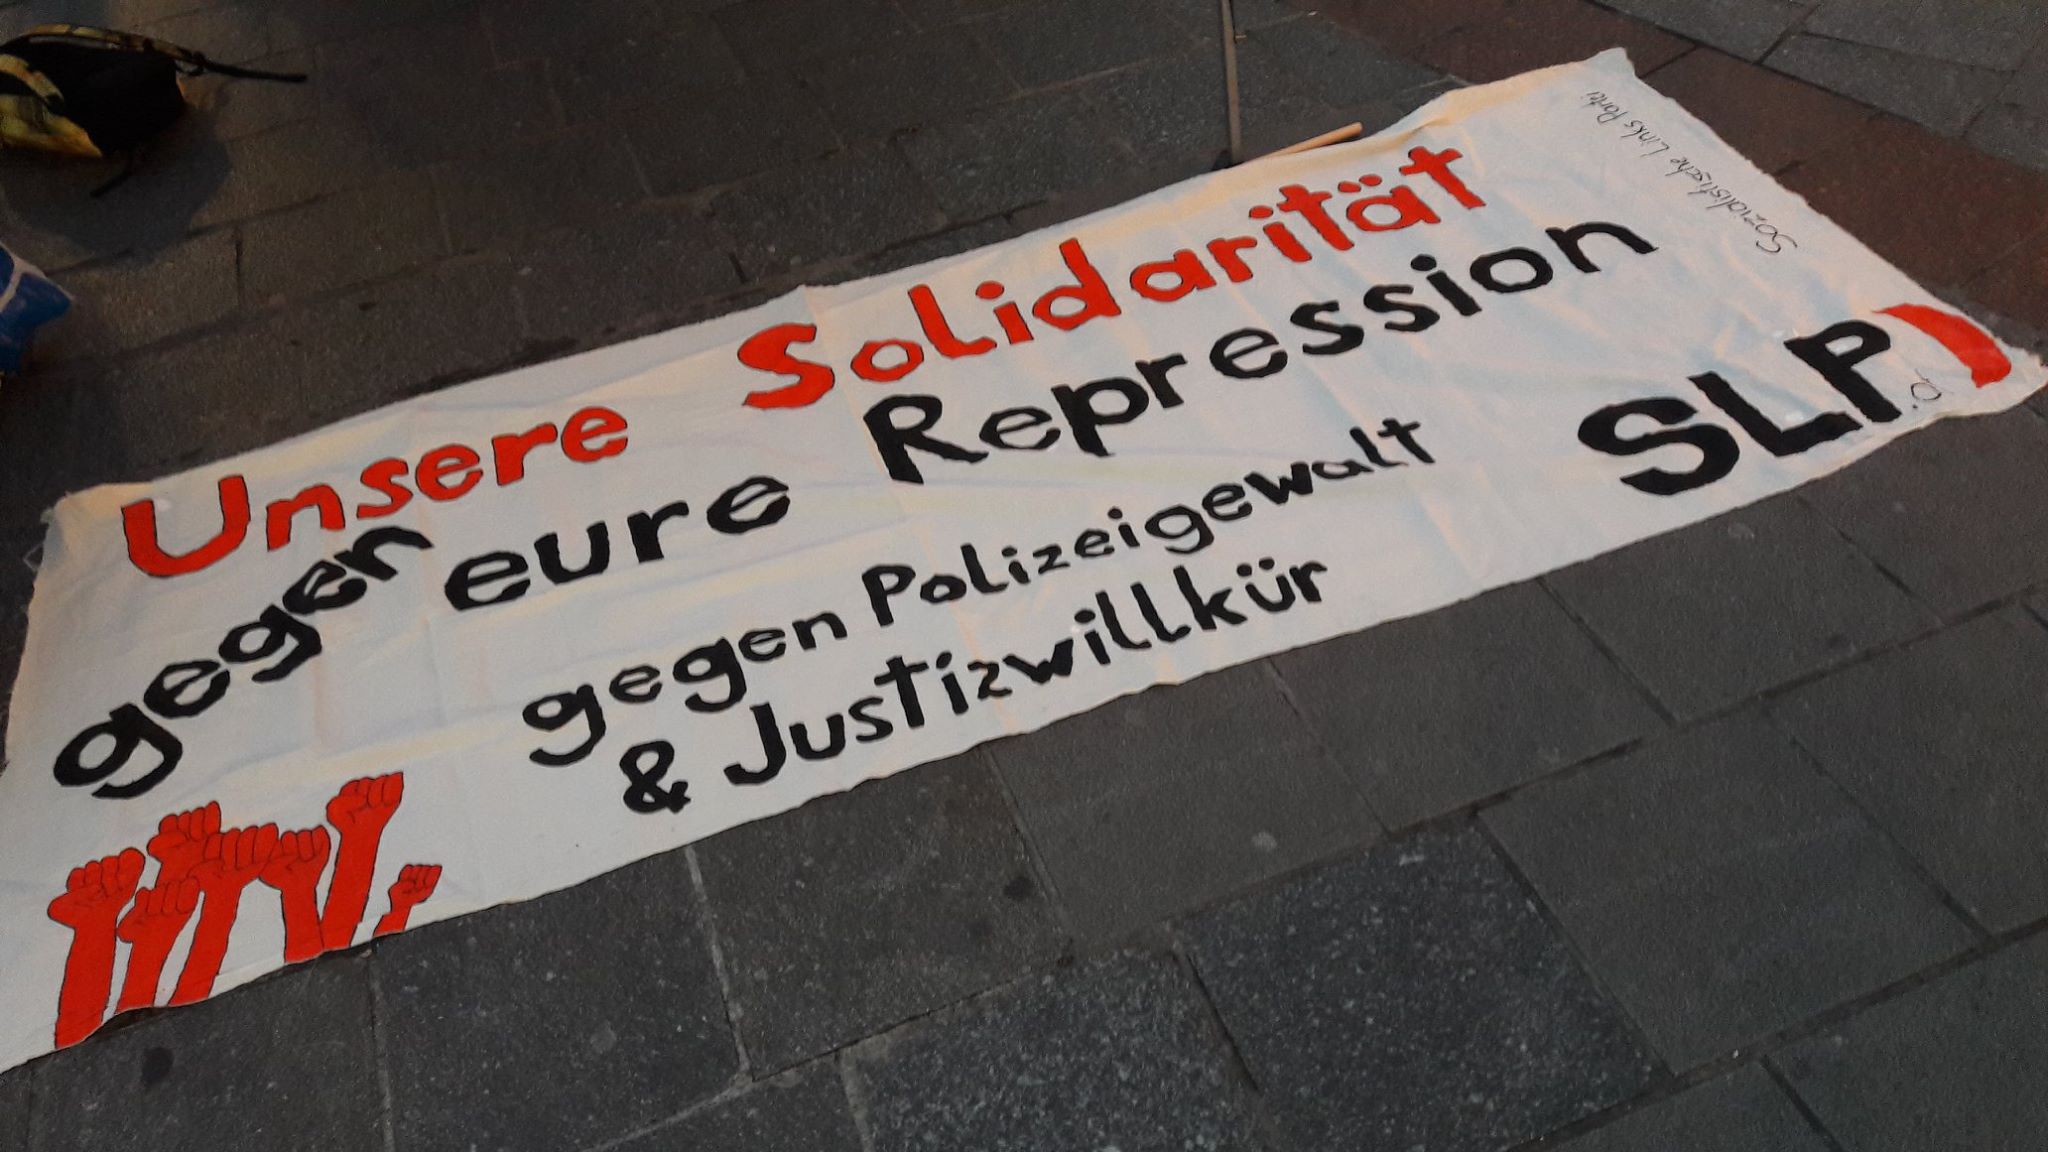 Unsere Solidarität
gegen eure Repression
gegen Polizeigewalt
& Justizwillkür
SLP
Sozialistische Links Partei